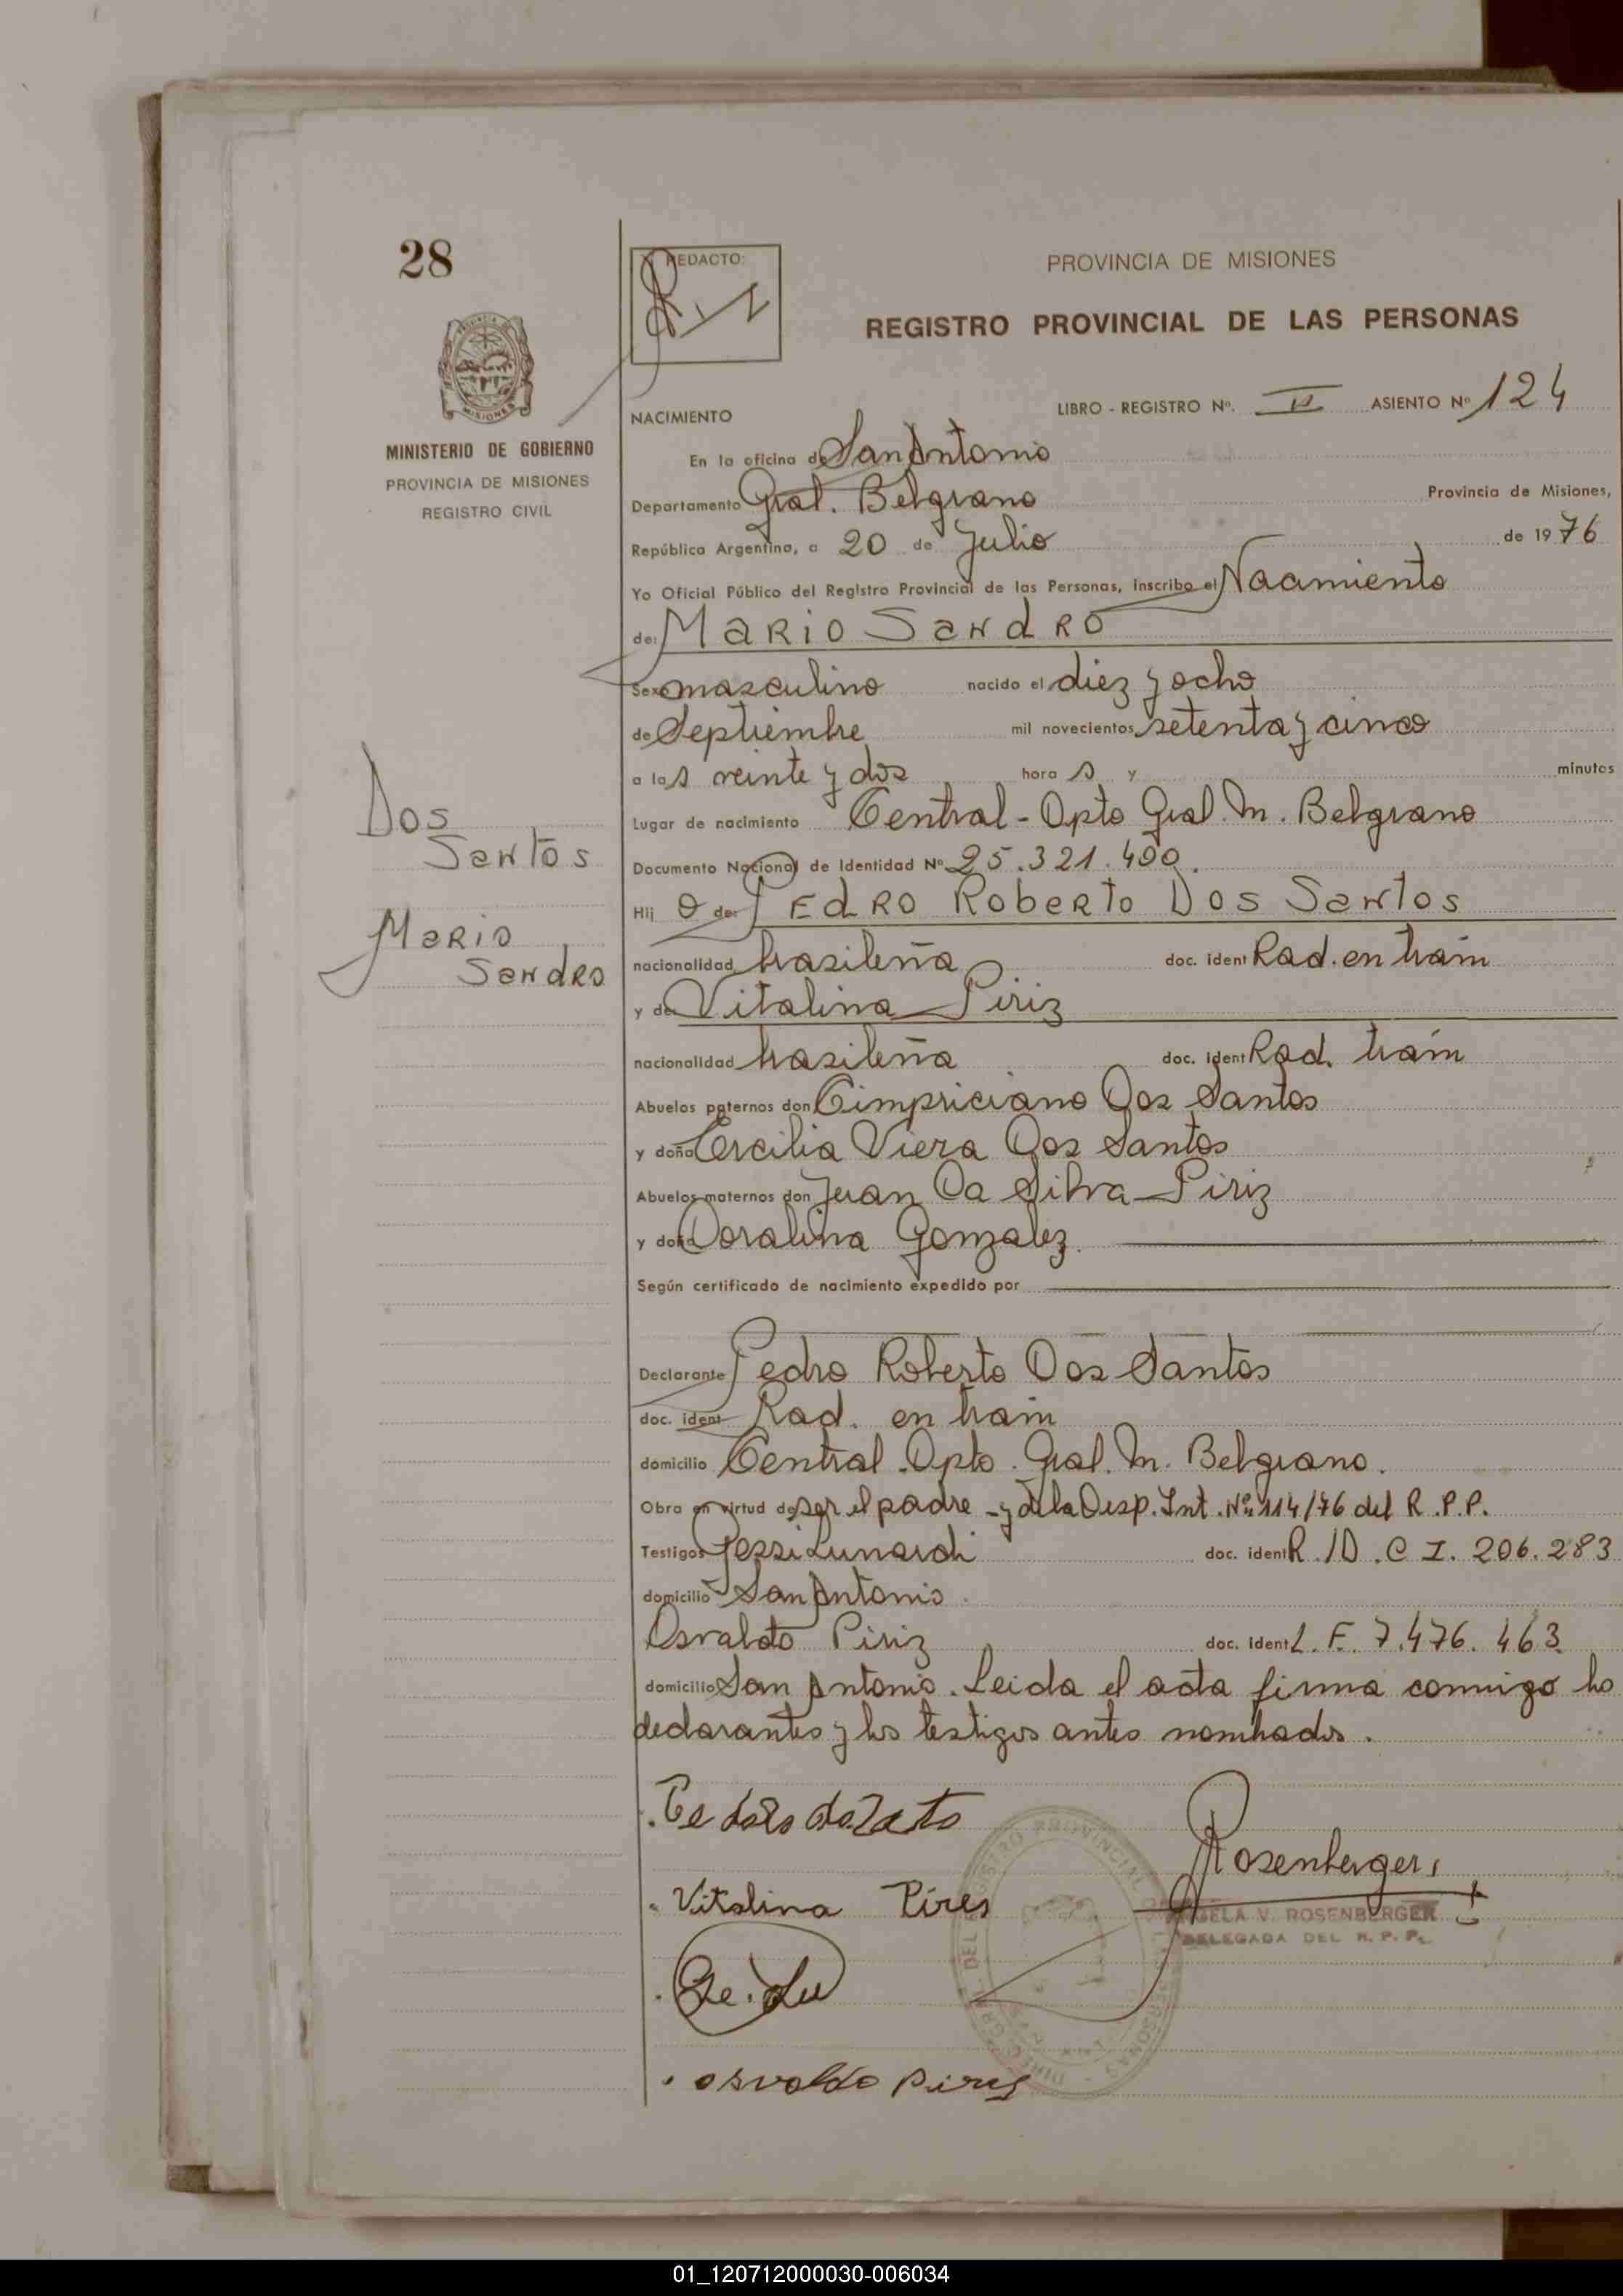 28
REDACTO:
PROVINCIA DE MISIONES
REGISTRO PROVINCIAL DE LAS PERSONAS
MISIONES
MINISTERIO DE GOBIERNO
PROVINCIA DE MISIONES
REGISTRO CIVIL
NACIMIENTO
LIBRO - REGISTRO Nº. ASIENTO Nº 124
En la oficina de San Antonio
Departamento Gral. Belgrano Provincia de Misiones,
República Argentina, a 20 de Julio de 1976
Yo Oficial Público del Registro Provincial de las Personas, inscribo el Nacimiento
de: Mario Sandro
Sexo masculino nacido el diez y ocho
de Septiembre mil novecientos setenta y cinco
a las veinte y dos horas y minutos
Lugar de nacimiento Central - Dpto Gral. M. Belgrano
Documento Nacional de Identidad Nº 25.321.400.
Hijo de: Pedro Roberto Dos Santos
nacionalidad brasileña doc. ident Rad. en trám
y de: Vitalina Piriz
nacionalidad brasileña doc. ident Rad. trám
Abuelos paternos don Cimpriciano Dos Santos
y doña Ercilia Viera Dos Santos
Abuelos maternos don Juan Da Silva Piriz
y doña Doralina Gonzalez.
Según certificado de nacimiento expedido por
Declarante Pedro Roberto Dos Santos
doc. ident Rad. en trám
domicilio Central Dpto. Gral. M. Belgrano.
Obra en virtud de ser el padre - y de la Disp. Int. Nº 114/76 del R.P.P.
Testigos Jessi Lunardi doc. ident R./D. C I. 206.283
domicilio San Antonio.
Osvaldo Piriz doc. ident L. E. 7.476.463.
domicilio San Antonio. Leida el acta firma conmigo lo
declarantes y los testigos antes nombrados.
Dos
Santos
Mario
Sandro
Vitalina Pires
Rosenberger
ANGELA V. ROSENBERGER
DELEGADA DEL R. P. P.
osvaldo pires
01_120712000030-006034